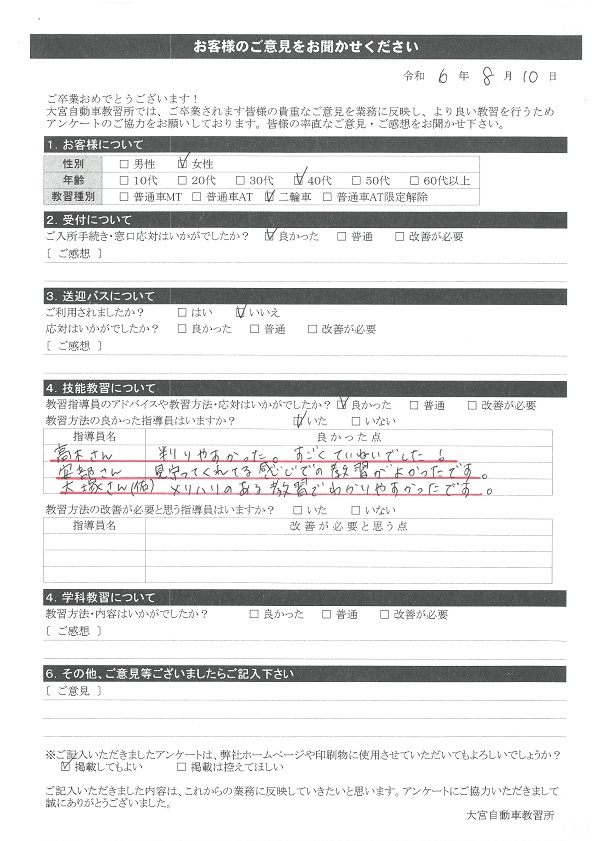 お客様のご意見をお聞かせください
令和 6 年 8 月 10 日
ご卒業おめでとうございます！
大宮自動車教習所では、ご卒業されます皆様の貴重なご意見を業務に反映し、より良い教習を行うため
アンケートのご協力をお願いしております。皆様の率直なご意見・ご感想をお聞かせ下さい。
1. お客様について
性別 □ 男性 ☑ 女性
年齢 □ 10代 □ 20代 □ 30代 ☑ 40代 □ 50代 □ 60代以上
教習種別 □ 普通車MT □ 普通車AT ☑ 二輪車 □ 普通車AT限定解除
2. 受付について
ご入所手続き・窓口応対はいかがでしたか？ ☑ 良かった □ 普通 □ 改善が必要
[ ご感想 ]
3. 送迎バスについて
ご利用されましたか？ □ はい ☑ いいえ
応対はいかがでしたか？ □ 良かった □ 普通 □ 改善が必要
[ ご感想 ]
4. 技能教習について
教習指導員のアドバイスや教習方法・応対はいかがでしたか？ ☑ 良かった □ 普通 □ 改善が必要
教習方法の良かった指導員はいますか？ ☑ いた □ いない
指導員名 良かった点
高木さん 判りやすかった。すごくていねいでした！
安部さん 見守ってくれてる感じでの教習がよかったです。
大塚さん(佑) メリハリのある教習でわかりやすかったです。
教習方法の改善が必要と思う指導員はいますか？ □ いた □ いない
指導員名 改善が必要と思う点
4. 学科教習について
教習方法・内容はいかがでしたか？ □ 良かった □ 普通 □ 改善が必要
[ ご感想 ]
6. その他、ご意見等ございましたらご記入下さい
[ ご意見 ]
※ご記入いただきましたアンケートは、弊社ホームページや印刷物に使用させていただいてもよろしいでしょうか？
☑ 掲載してもよい □ 掲載は控えてほしい
ご記入いただきました内容は、これからの業務に反映していきたいと思います。アンケートにご協力いただきまして
誠にありがとうございました。
大宮自動車教習所